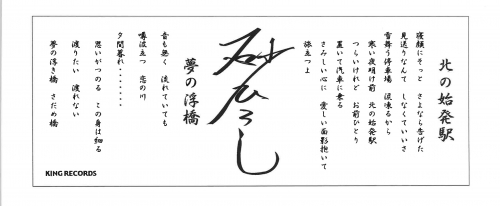 北の始発駅
寝顔にそっと さよなら告げた
見送りなんて しなくていいさ
雪舞う停車場 涙凍るから
寒い夜明け前 北の始発駅
つらいけれど お前ひとり
置いて汽車に乗る
さみしい心に 愛しい面影抱いて
旅立つよ
砂ひろし
夢の浮橋
音も無く 流れていても
噂波立つ 恋の川
夕間暮れ・・・・・・・・
思いがつのる この身は細る
渡りたい 渡れない
夢の浮き橋 さだめ橋
KING RECORDS